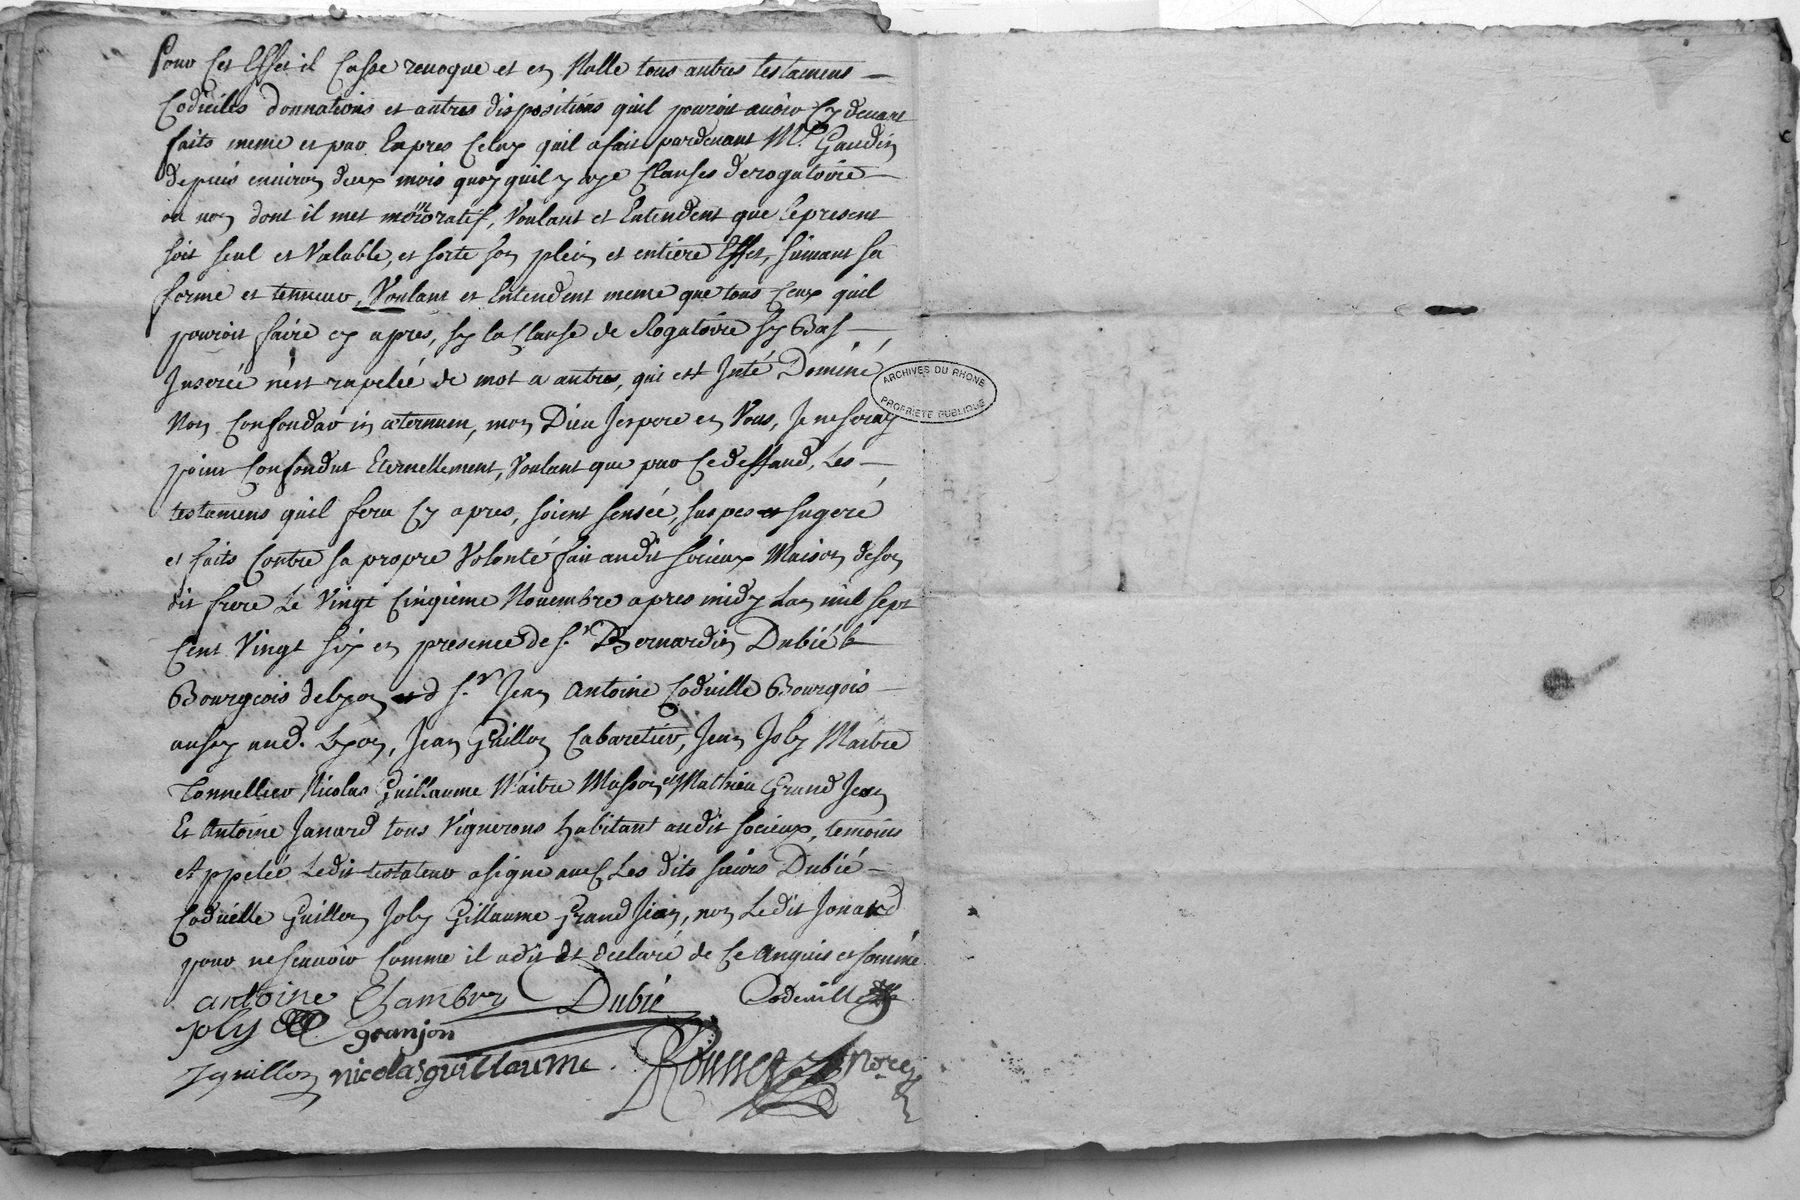 Pour Cet Effet il Casse revoque et en Nulle tous autres testamens
Codiciles donnations et autres dispositions quil pouroit avoir Cy devant
faits meme et par Expres Celuy quil a fait pardevant Mr. Gaudin
depuis environ deux mois quoy quil y aye Clauses derogatoire
ou non dont il met memoratif, Voulant et Entendent que le present
soit seul et Valable, et sorte son plein et entiere Effet, suivant sa
forme et tenneur, Voulant et Entendent meme que tous Ceux quil
pouroit faire cy apres, sy la Clause de Rogatoire sy Bas
Inserée nest rapelée de mot a autres, qui est Inté Dominé
Non Confondar in æternum, mon Dieu Jespere en Vous, Je ne seray
point Confondut Eternellement, Voulant que par Ce deffaud, Les
testamens quil fera Cy apres, soient sensée, suspes et sugeré
et faits Contre sa propre Volonté fait audit soucieux Maison de son
dit frere Le Vingt Cinqième Novembre apres midy Lan mil sept
Cent Vingt six en presence de sr. Bernardin Dubié
Bourgeois de Lyon sr. Jean Antoine Codeville Bourgois
aussy aud. Lyon, Jean Guillon Cabaretier, Jean Joly Maitre
Tonnellier Nicolas Guillaume Maitre Masson et Mathieu Grand Jean
Et Antoine Janard tous Vignerons habitant audit socieux, temoins
Appelée Ledit testateur a signé avec Les dits sieurs Dubié
Codeville Guillon Joly Gillaume Grand Jean, non Ledit Jonard
pour ne scavoir Comme il a dit et declaré de Ce Anquis et sommé
antoine Chambry Dubié Codeville
joly granjon
Jguillon nicolas guillaume. Rousset Nore
ARCHIVES DU RHONE
PROPRIETE PUBLIQUE